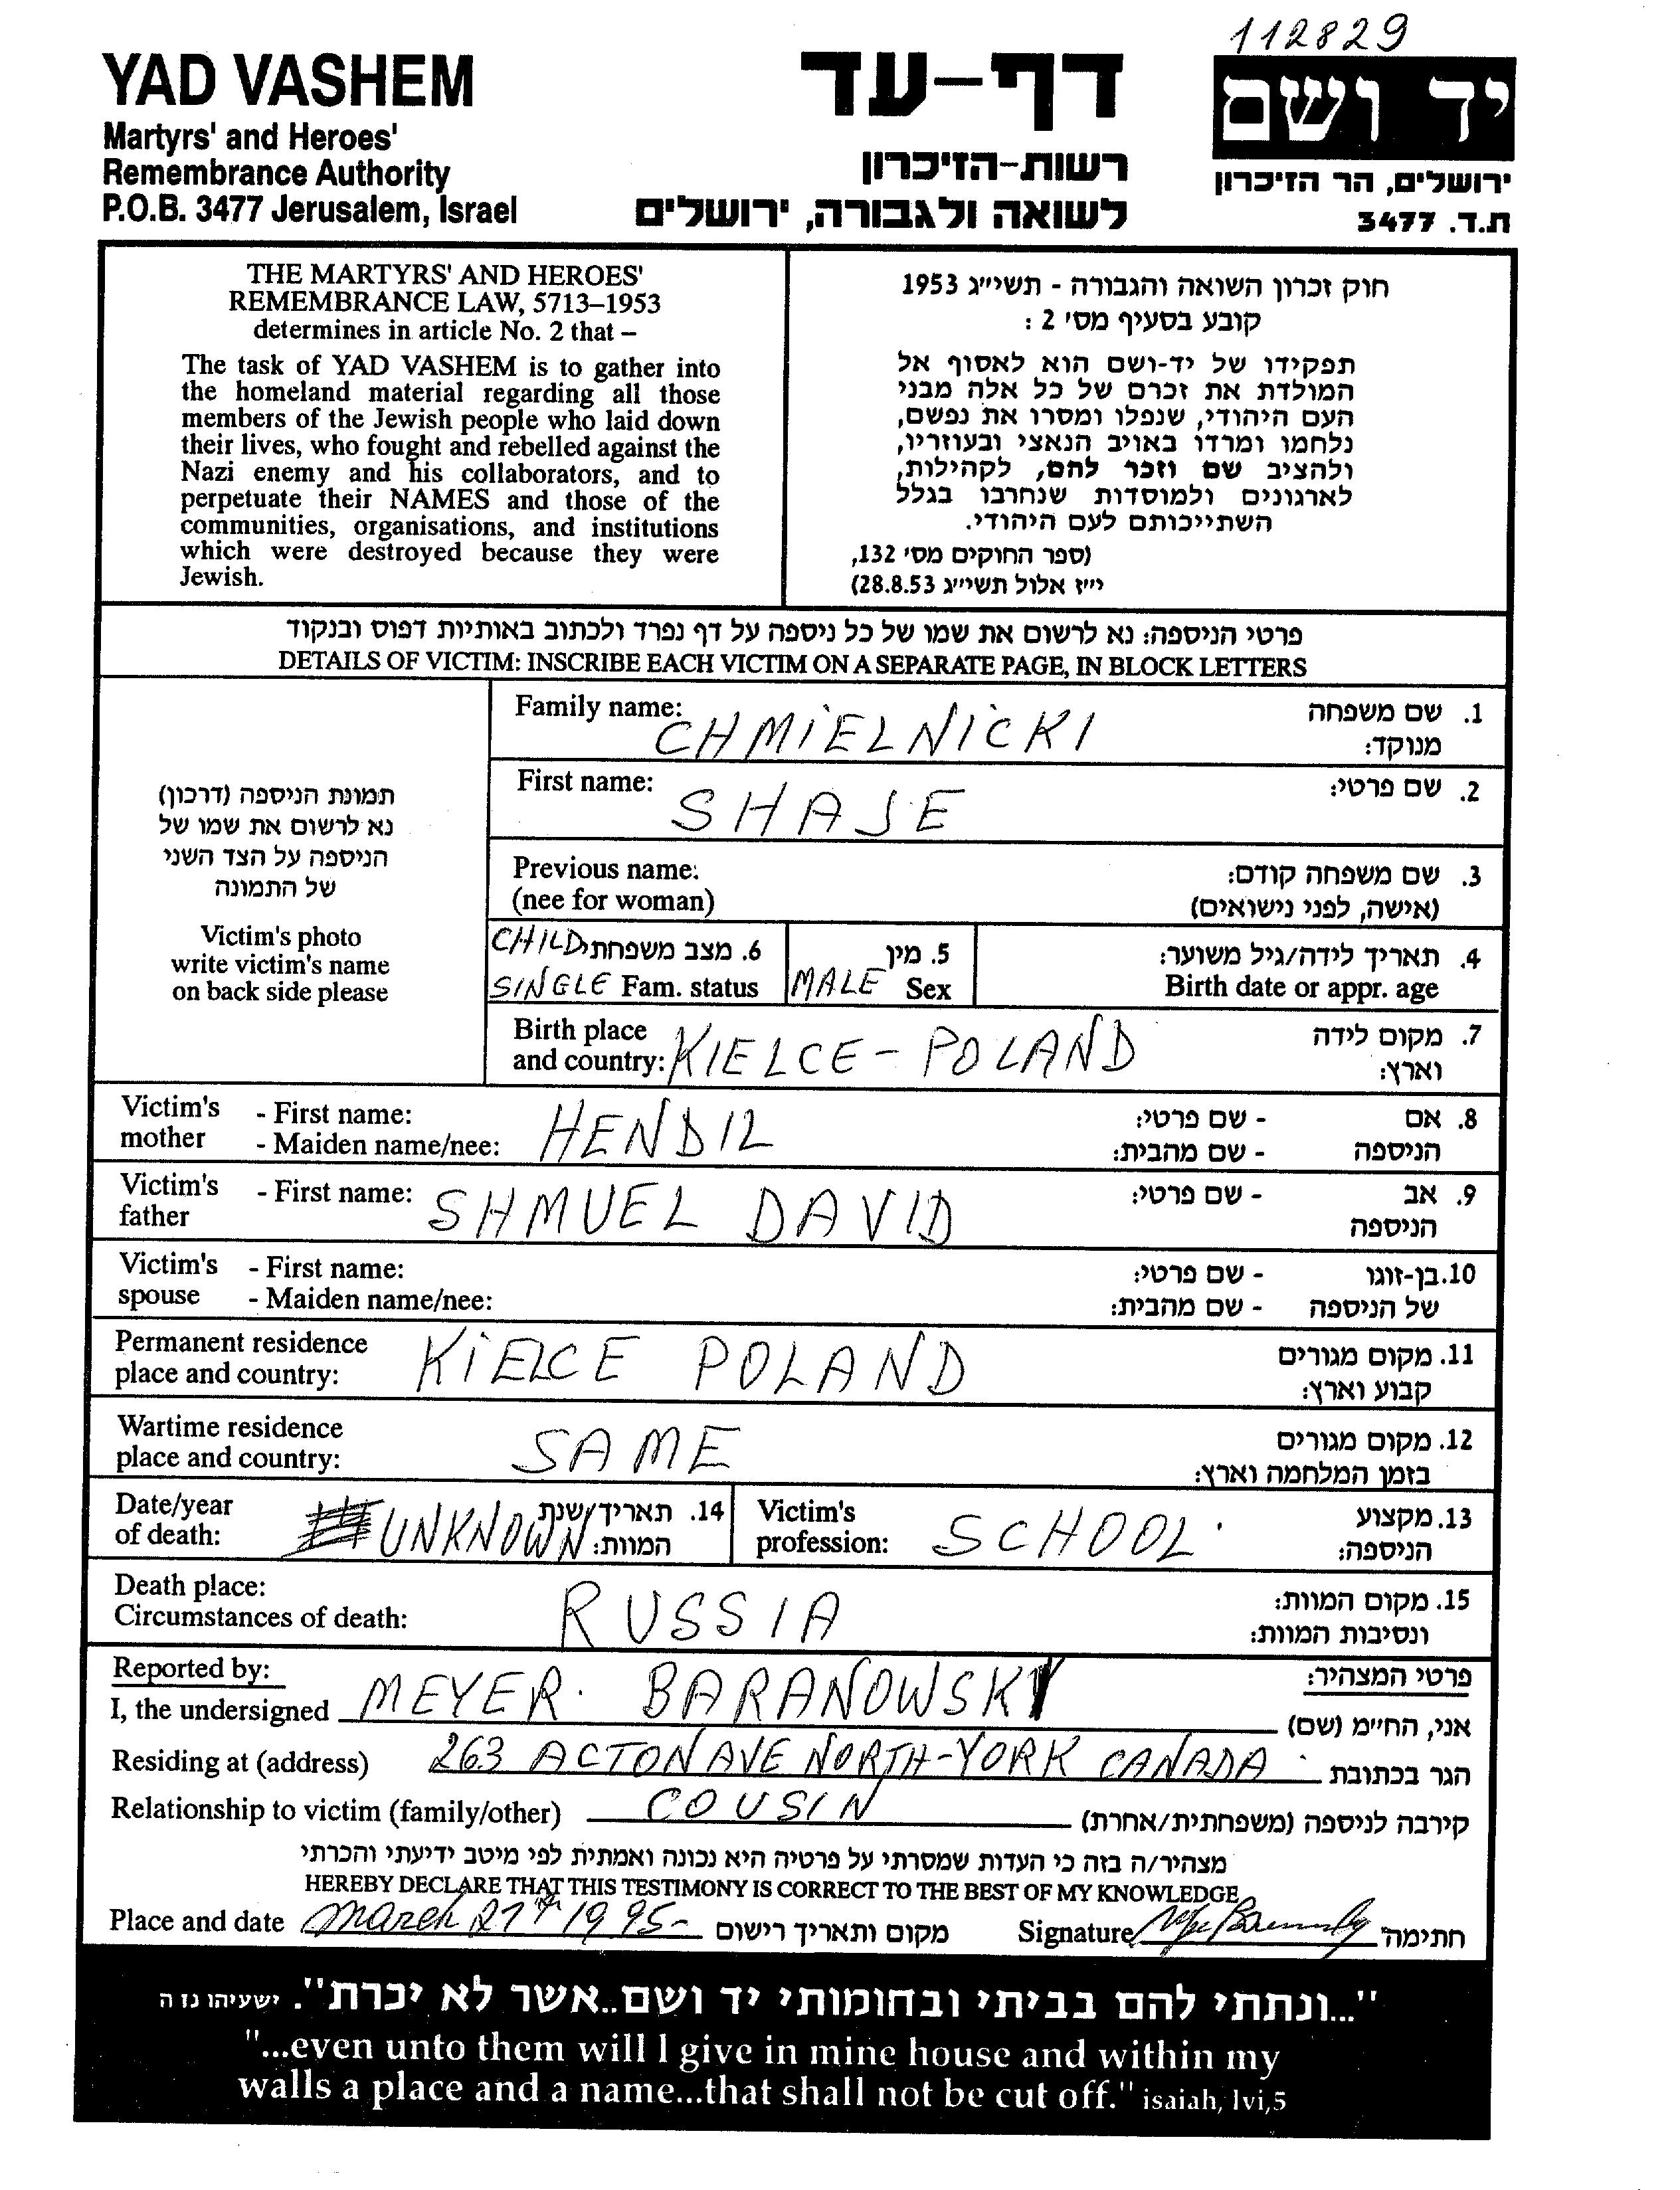 112829
YAD VASHEM
Martyrs' and Heroes'
Remembrance Authority
P.O.B. 3477 Jerusalem, Israel
דף-עד
רשות-הזיכרון
לשואה ולגבורה, ירושלים
יד ושם
ירושלים, הר הזיכרון
ת.ד. 3477
THE MARTYRS' AND HEROES'
REMEMBRANCE LAW, 5713–1953
determines in article No. 2 that –
The task of YAD VASHEM is to gather into
the homeland material regarding all those
members of the Jewish people who laid down
their lives, who fought and rebelled against the
Nazi enemy and his collaborators, and to
perpetuate their NAMES and those of the
communities, organisations, and institutions
which were destroyed because they were
Jewish.
חוק זכרון השואה והגבורה - תשי״ג 1953
קובע בסעיף מס׳ 2 :
תפקידו של יד-ושם הוא לאסוף אל
המולדת את זכרם של כל אלה מבני
העם היהודי, שנפלו ומסרו את נפשם,
נלחמו ומרדו באויב הנאצי ובעוזריו,
ולהציב שם וזכר להם, לקהילות,
לארגונים ולמוסדות שנחרבו בגלל
השתייכותם לעם היהודי.
(ספר החוקים מס׳ 132,
י״ז אלול תשי״ג 28.8.53)
פרטי הניספה: נא לרשום את שמו של כל ניספה על דף נפרד ולכתוב באותיות דפוס ובנקוד
DETAILS OF VICTIM: INSCRIBE EACH VICTIM ON A SEPARATE PAGE, IN BLOCK LETTERS
תמונת הניספה (דרכון)
נא לרשום את שמו של
הניספה על הצד השני
של התמונה
Victim's photo
write victim's name
on back side please
Family name: CHMIELNICKI 1. שם משפחה
מנוקד:
First name: SHAJE 2. שם פרטי:
Previous name: 3. שם משפחה קודם:
(nee for woman) (אישה, לפני נישואים)
CHILD 6. מצב משפחתי 5. מין 4. תאריך לידה/גיל משוער:
SINGLE Fam. status MALE Sex Birth date or appr. age
Birth place 7. מקום לידה
and country: KIELCE - POLAND וארץ:
Victim's - First name: HENDIL - שם פרטי: 8. אם
mother - Maiden name/nee: - שם מהבית: הניספה
Victim's - First name: SHMUEL DAVID - שם פרטי: 9. אב
father הניספה
Victim's - First name: - שם פרטי: 10. בן-זוגו
spouse - Maiden name/nee: - שם מהבית: של הניספה
Permanent residence KIELCE POLAND 11. מקום מגורים
place and country: קבוע וארץ:
Wartime residence SAME 12. מקום מגורים
place and country: בזמן המלחמה וארץ:
Date/year 14. תאריך/שנת Victim's 13. מקצוע
of death: UNKNOWN המוות: profession: SCHOOL הניספה:
Death place: RUSSIA 15. מקום המוות:
Circumstances of death: ונסיבות המוות:
Reported by: פרטי המצהיר:
I, the undersigned MEYER BARANOWSKY אני, הח״מ (שם)
Residing at (address) 263 ACTON AVE NORTH-YORK CANADA הגר בכתובת
Relationship to victim (family/other) COUSIN קירבה לניספה (משפחתית/אחרת)
מצהיר/ה בזה כי העדות שמסרתי על פרטיה היא נכונה ואמתית לפי מיטב ידיעתי והכרתי
HEREBY DECLARE THAT THIS TESTIMONY IS CORRECT TO THE BEST OF MY KNOWLEDGE
Place and date March 27th 1995- מקום ותאריך רישום Signature חתימה
"...ונתתי להם בביתי ובחומותי יד ושם..אשר לא יכרת". ישעיהו נו ה
"...even unto them will I give in mine house and within my
walls a place and a name...that shall not be cut off." isaiah, lvi,5